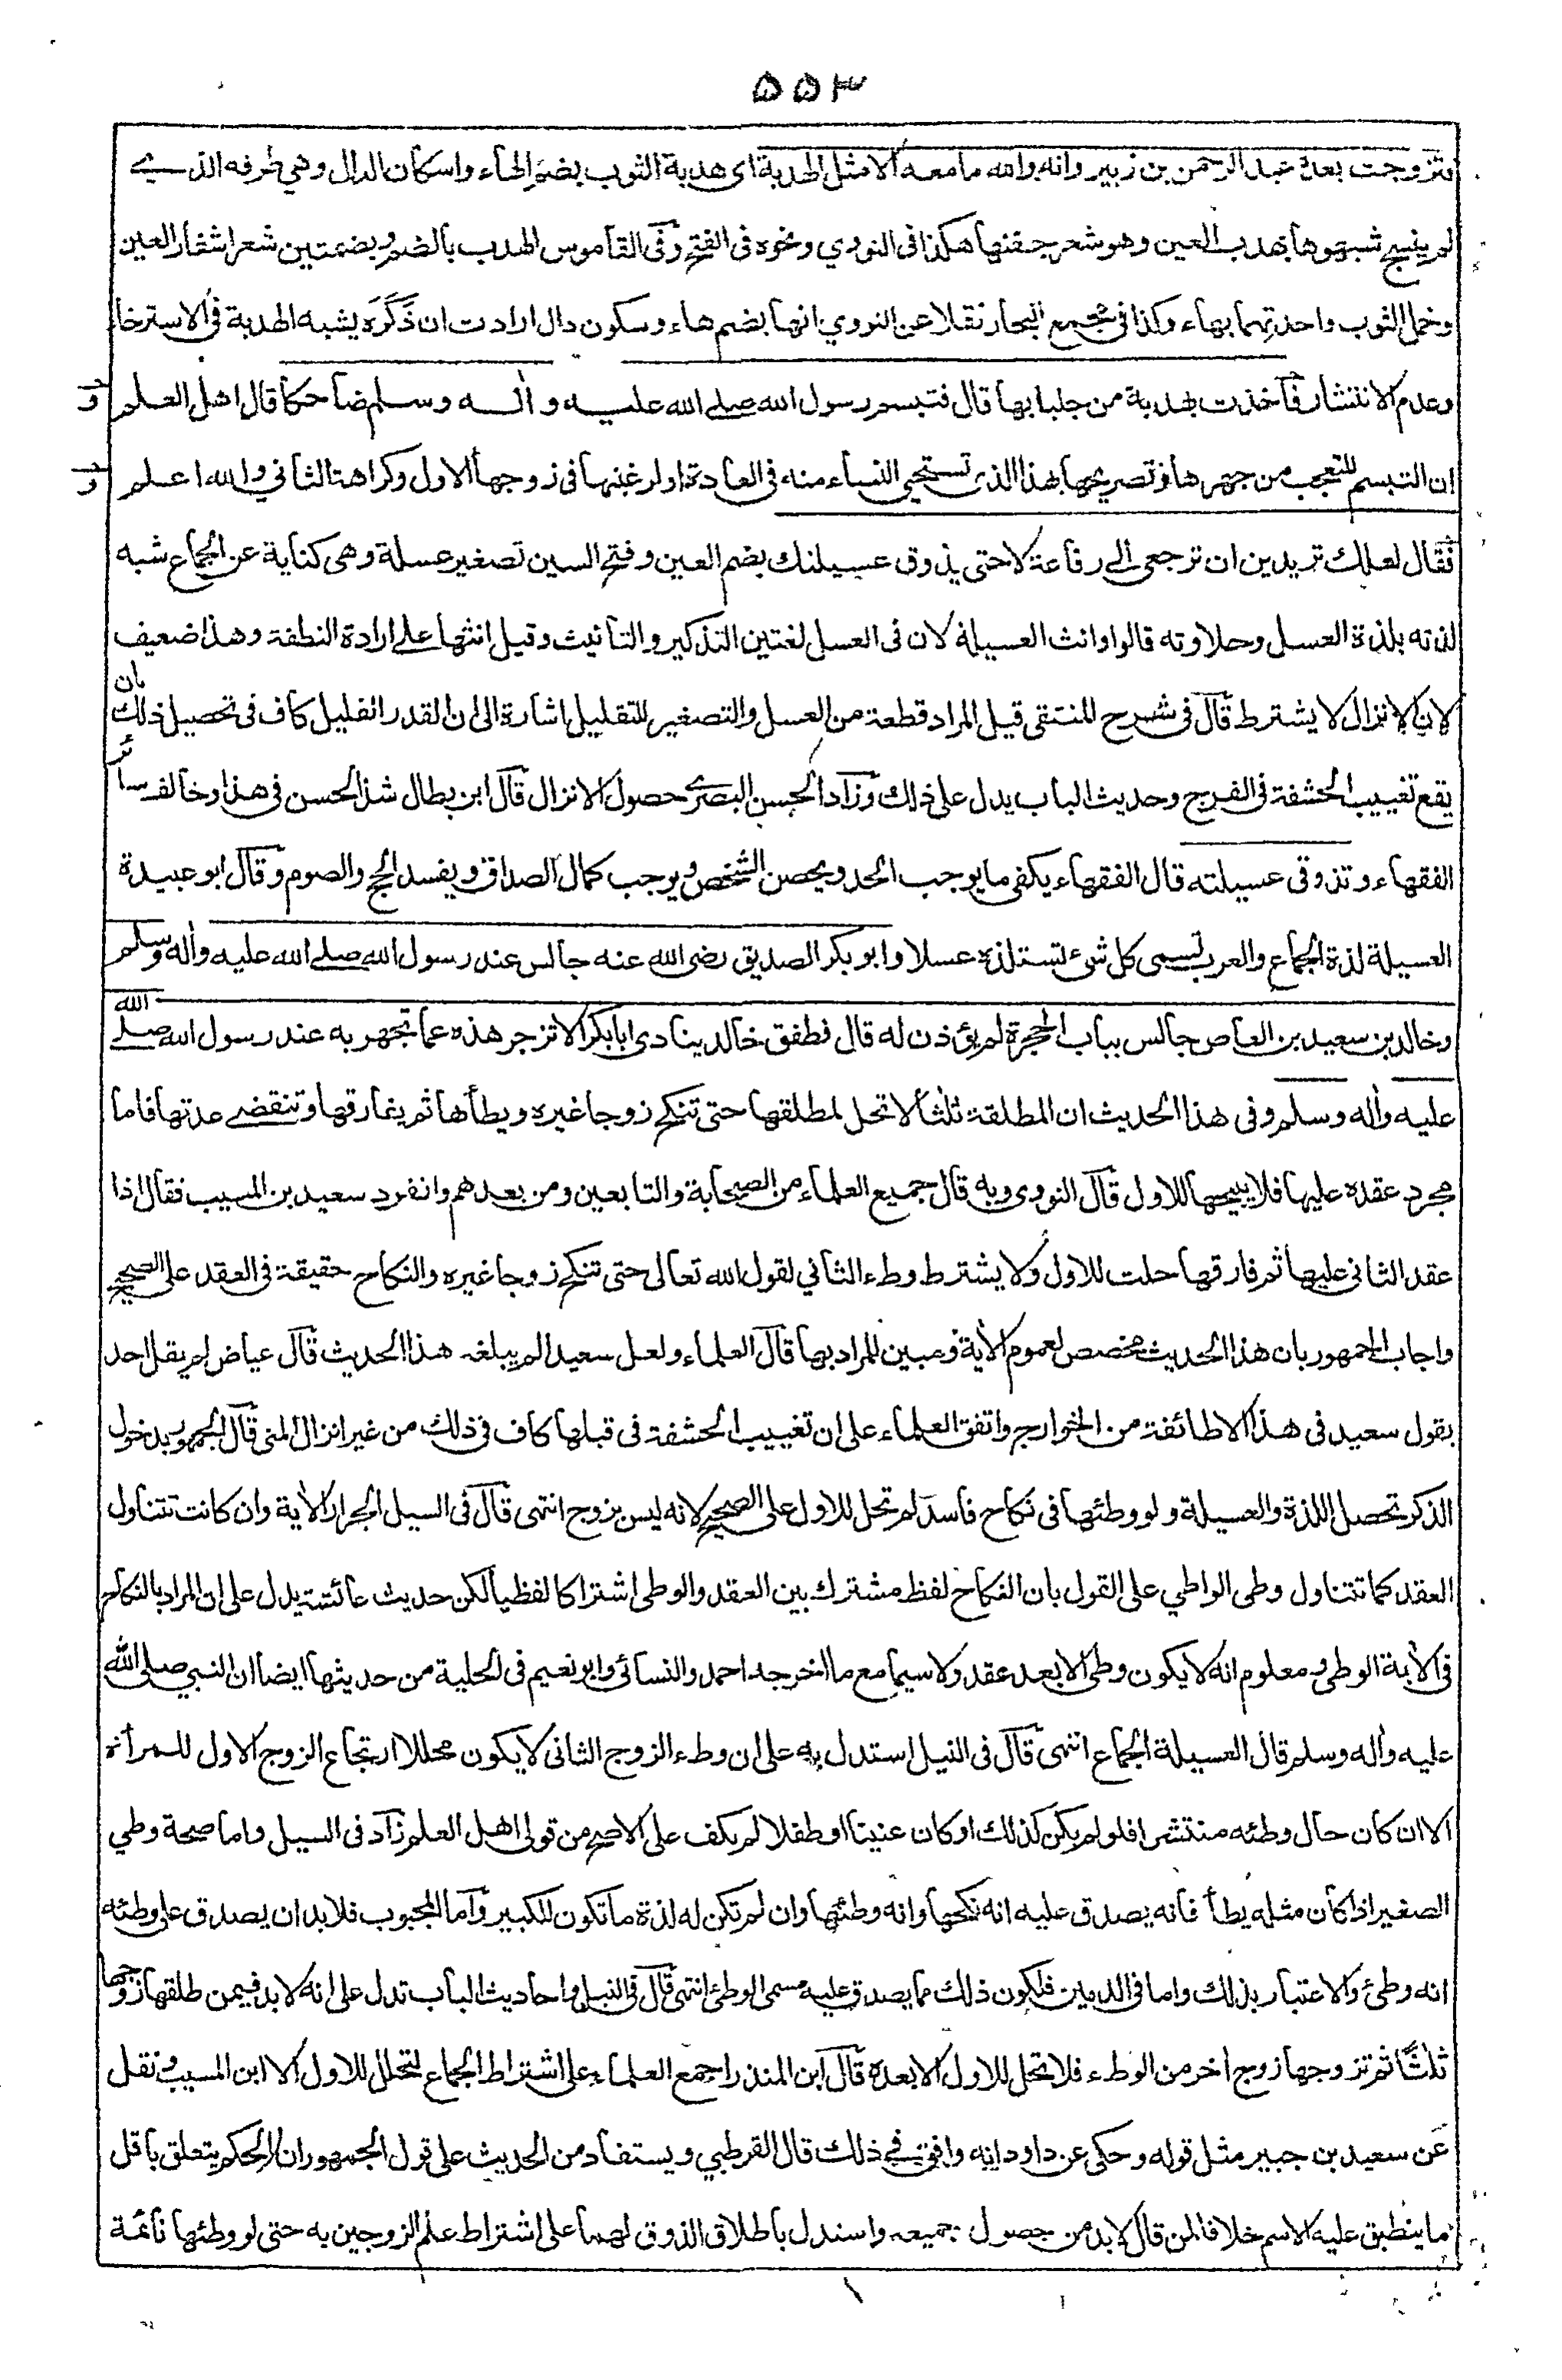 ۵۵۳
فتزوجت بعده عبد الرحمن بن زبير وانه والله مامعه الا مثل الهدبة اى هدبة الثوب بضم الهاء واسكان الدال وهي طرفه الذي
لم ينسج شبهوها بهدب العين وهو شعر جفنها هكذا فى النووي ونحوه فى الفتح وفى القاموس الهدب بالضم وبضمتين شعر اشفار العين
وخمل الثوب واحدتهما بهاء وكذا فى مجمع البحار نقلا عن النووي انها بضم هاء وسكون دال ارادت ان ذَكَرَه يشبه الهدبة فى الاسترخاء
وعدم الانتشار فاخذت بهدبة من جلبابها قال فتبسم رسول الله صلے الله عليه واله وسلم ضاحكا قال اهل العلم
ان التبسم للتعجب من جهرها وتصريحها بهذا الذى تستحيى النساء منه فى العادة او لرغبتها فى زوجها الاول وكراهتا الثاني والله اعلم
فقال لعلك تريدين ان ترجعى الے رفاعة لا حتى يذوق عسيلتك بضم العين وفتح السين تصغير عسلة وهى كناية عن الجماع شبه
لذته بلذة العسل وحلاوته قالوا وانث العسيلة لان فى العسل لغتين التذكير والتانيث وقيل انثها علے ارادة النطفة وهذا ضعيف
لان الانزال لا يشترط قال فى شرح المنتقى قيل المراد قطعة من العسل والتصغير للتقليل اشارة الى ان القدر القليل كاف فى تحصيل ذلك بان
يقع تغييب الحشفة فى الفرج وحديث الباب يدل على ذلك وزاد الحسن البصرے حصول الانزال قال ابن بطال شذ الحسن فى هذا وخالف سائر
الفقهاء وتذوقى عسيلته قال الفقهاء يكفى ما يوجب الحد ويحصن الشخص ويوجب كمال الصداق ويفسد الحج والصوم وقال ابو عبيدة
العسيلة لذة الجماع والعرب تسمى كل شئ تستلذه عسلا وابو بكر الصديق رضى الله عنه جالس عند رسول الله صلے الله عليه واله وسلم
وخالد بن سعيد بن العاص جالس بباب الحجرة لم يؤذن له قال فطفق خالد ينادى ابا بكر الا تزجر هذه عما تجهر به عند رسول الله صلے الله
عليه واله وسلم وفى هذا الحديث ان المطلقة ثلثا لا تحل لمطلقها حتى تنكح زوجا غيره ويطأها ثم يفارقها وتنقضے عدتها فاما
مجرد عقده عليها فلا يبيحها للاول قال النووى وبه قال جميع العلماء من الصحابة والتابعين ومن بعدهم وانفرد سعيد بن المسيب فقال اذا
عقد الثانى عليها ثم فارقها حلت للاول ولا يشترط وطء الثاني لقول الله تعالى حتى تنكح زوجا غيره والنكاح حقيقة فى العقد على الصحيح
واجاب الجمهور بان هذا الحديث مخصص لعموم الاية ومبين للمراد بها قال العلماء ولعل سعيدا لم يبلغه هذا الحديث قال عياض لم يقل احد
بقول سعيد فى هذا الا طائفة من الخوارج واتفق العلماء على ان تغييب الحشفة فى قبلها كاف فى ذلك من غير انزال المنى قال الجمهور بدخول
الذكر تحصل اللذة والعسيلة ولو وطئها فى نكاح فاسد لم تحل للاول على الصحيح لانه ليس بزوج انتهى قال فى السيل الجرار الاية وان كانت تتناول
العقد كما تتناول وطى الواطي على القول بان النكاح لفظ مشترك بين العقد والوطى اشتراكا لفظيا لكن حديث عائشة يدل على ان المراد بالنكاح
فى الاية الوطى ومعلوم انه لا يكون وطى الا بعد عقد ولا سيما مع ما اخرجه احمد والنسائى وابو نعيم فى الحلية من حديثها ايضا ان النبي صلى الله
عليه واله وسلم قال العسيلة الجماع انتهى قال فى النيل استدل به على ان وطء الزوج الثانى لا يكون محللا ارتجاع الزوج الاول للمرأة
الا ان كان حال وطئه منتشرا فلو لم يكن كذلك او كان عنينا او طفلا لم يكف على الاصح من قولى اهل العلم زاد فى السيل واما صحة وطي
الصغير اذا كان مثله يطأ فانه يصدق عليه انه نكحها وانه وطئها وان لم تكن له لذة ما تكون للكبير واما المجبوب فلا بد ان يصدق على وطئه
انه وطئ والاعتبار بذلك واما فى الدمين فلكون ذلك مما يصدق عليه مسمى الوطئ انتهى قال فى النيل واحاديث الباب تدل على انه لا بد فيمن طلقها زوجها
ثلثًا ثم تزوجها زوج اخر من الوطء فلا تحل للاول الا بعده قال ابن المنذر اجمع العلماء على اشتراط الجماع لتحل للاول الا ابن المسيب ونقل
عن سعيد بن جبير مثل قوله وحكى عن داود انه وافق فے ذلك قال القرطبي ويستفاد من الحديث على قول الجمهور ان الحكم يتعلق باقل
ما ينطبق عليه الاسم خلافا لمن قال لا بد من حصول جميعه واستدل باطلاق الذوق لهما على اشتراط علم الزوجين به حتى لو وطئها نائمة